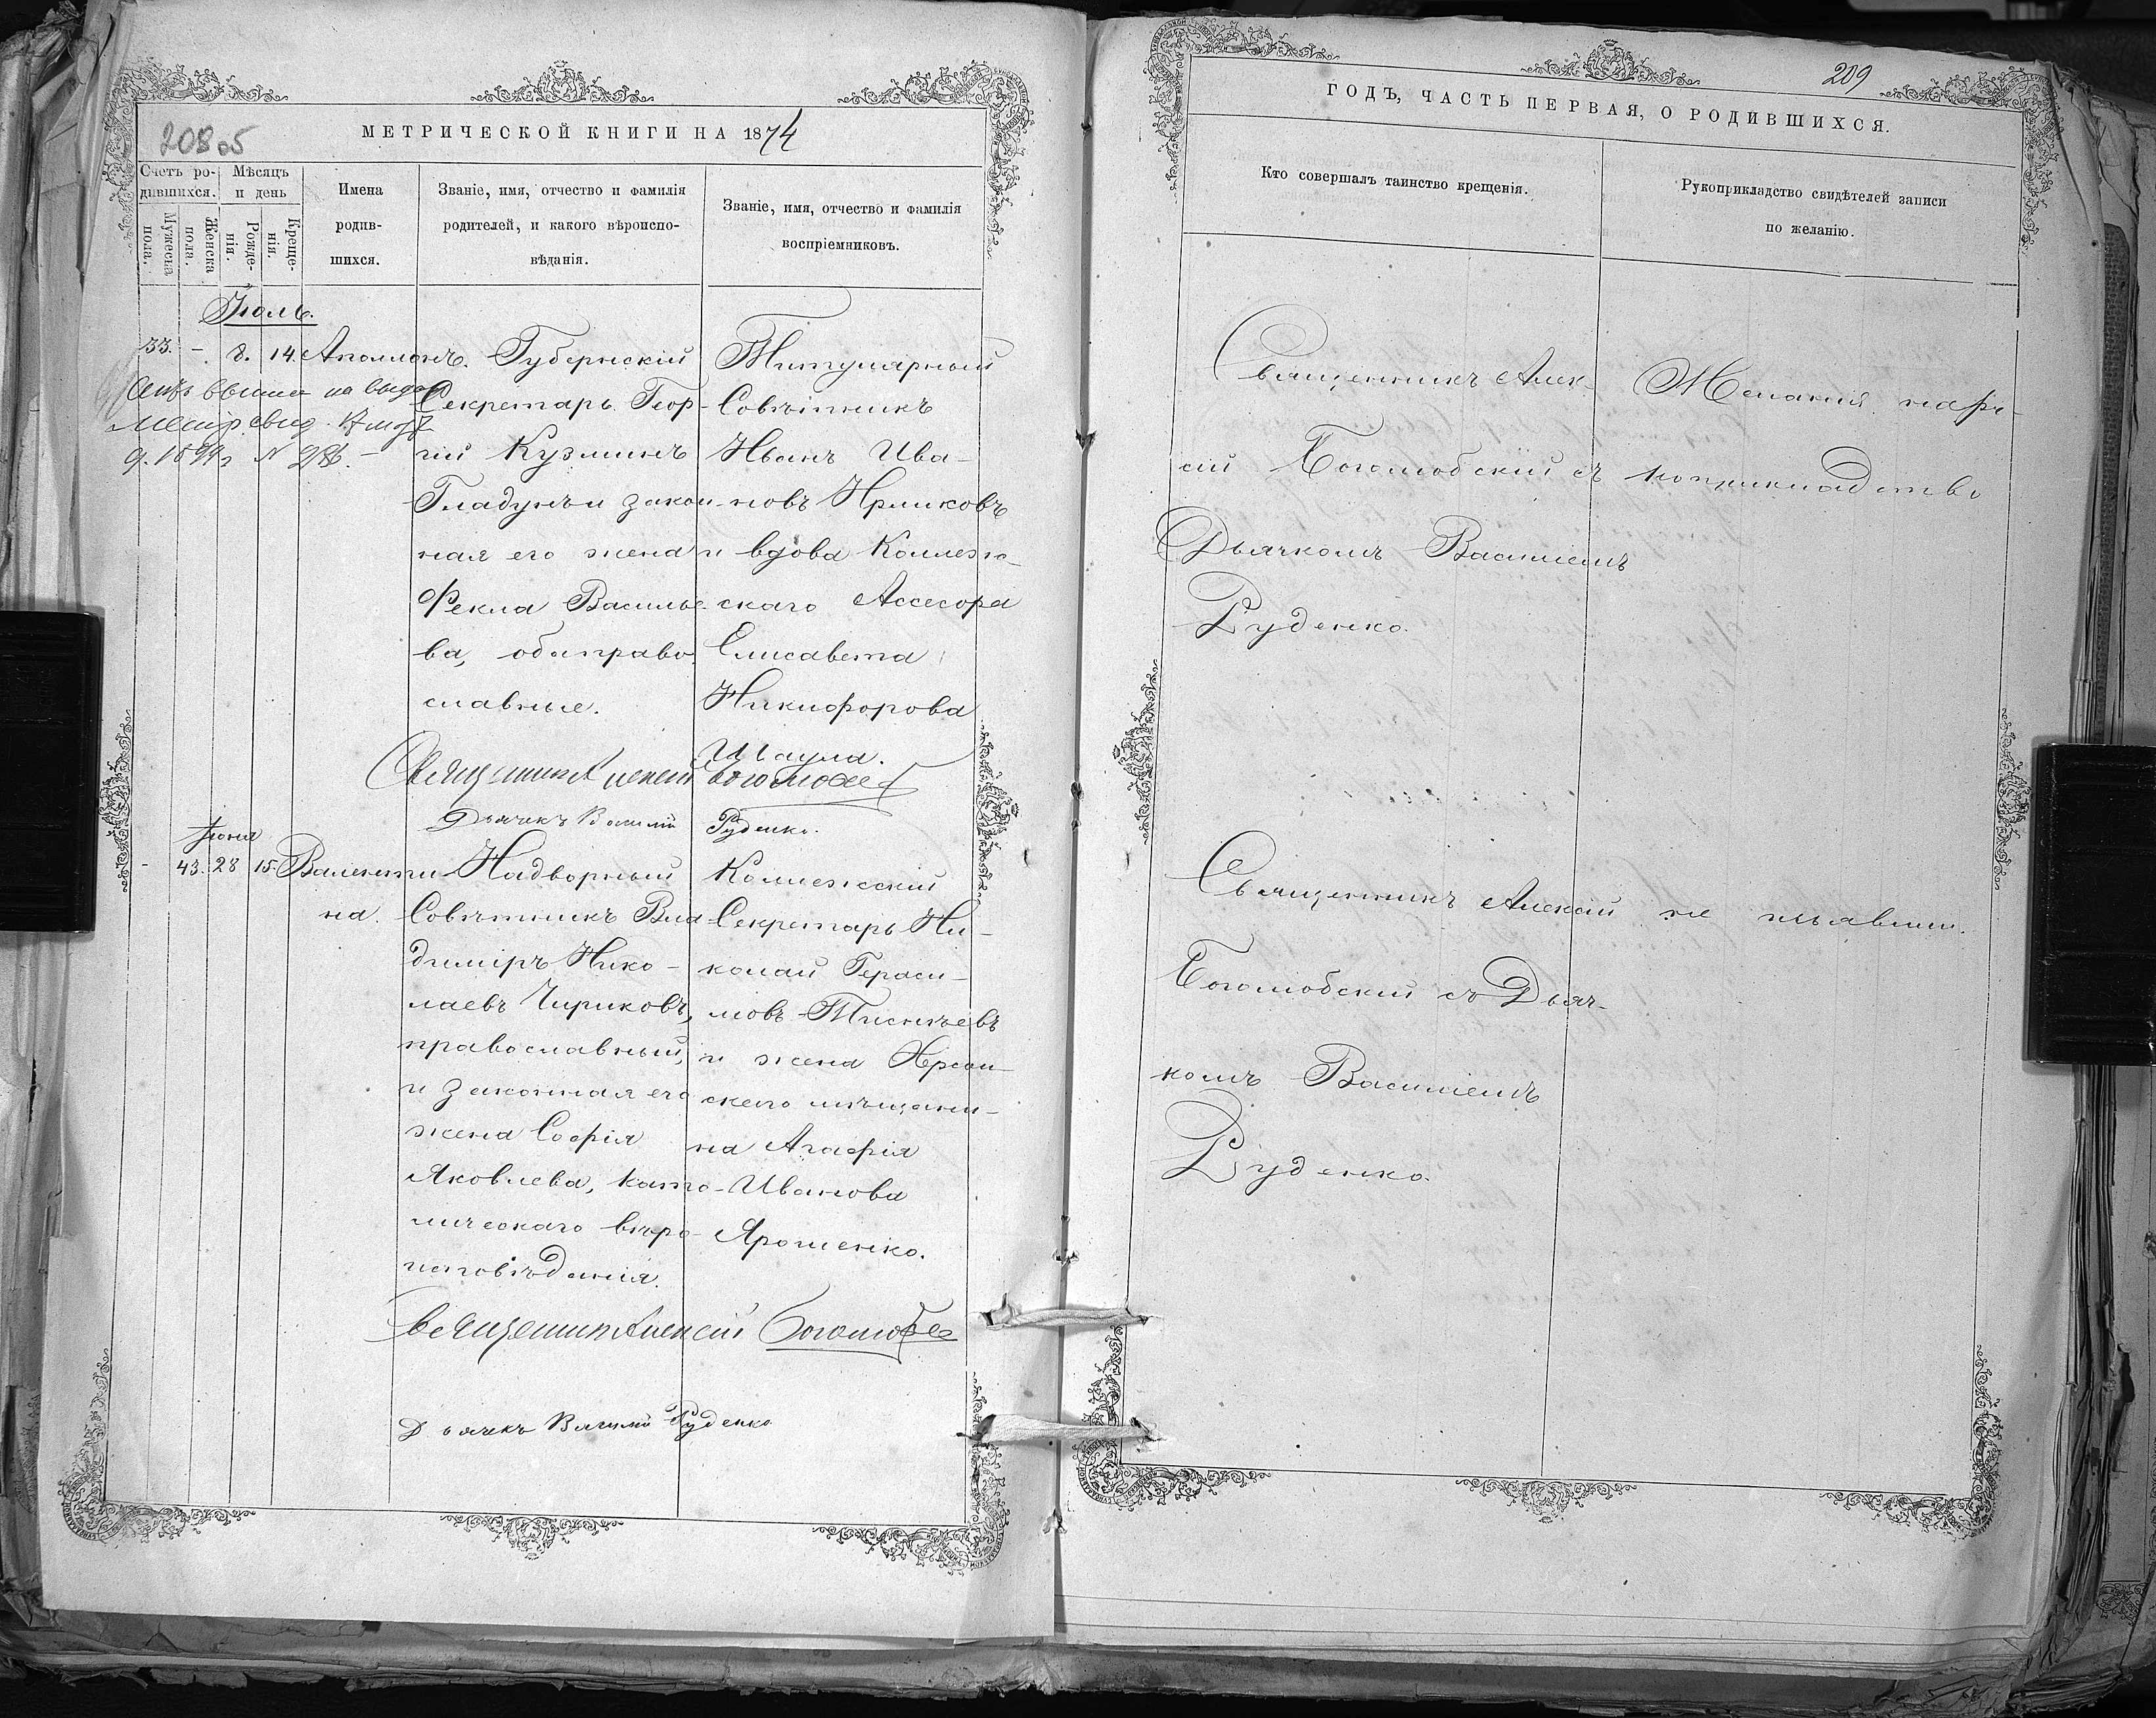 208 об
МЕТРИЧЕСКОЙ КНИГИ НА 1874
Счетъ ро-
дившихся.
Мѣсяцъ
и день
Мужеска
пола.
Женска
пола.
Рожде-
нія.
Креще-
нія.
Имена
родив-
шихся.
Званіе, имя, отчество и фамилія
родителей, и какого вѣроиспо-
вѣданія.
Званіе, имя, отчество и фамилія
воспріемниковъ.
Іюль.
33. - 8. 14. Аполлонъ.
Губернскій
Секретарь Геор-
гій Кузминъ
Гладунъ и закон-
ная его жена
Фекла Василье-
ва, оба право-
славные.
Титулярный
Совѣтникъ
Иванъ Ива-
новъ Ирликовъ
и вдова Коллеж-
скаго Ассесора
Елисавета
Никифорова
Шаула.
Священникъ Алексій Боголюбс
Дьячекъ Василій Руденко.
Іюня
- 43. 28 15. Валенти
на.
Надворный
Совѣтникъ Вла-
димiръ Нико-
лаевъ Чириковъ,
православный,
и законная его
жена Софія
Яковлева, като-
лическаго вѣро-
исповѣданія.
Коллежскій
Секретарь Ни-
колай Гераси-
мовъ
и жена
мѣщани-
на Агафія
Иванова
Ярошенко.
Священникъ Алексій Боголюбс
Дьячекъ Василій Руденко
209
ГОДЪ, ЧАСТЬ ПЕРВАЯ, О РОДИВШИХСЯ.
Кто совершалъ таинство крещенія.
Рукоприкладство свидѣтелей записи
по желанію.
Священникъ Алек-
сій Боголюбскій съ
Дьячкомъ Василіемъ
Руденко.
Священникъ Алексій
Боголюбскій съ Дьяч-
комъ Василіемъ
Руденко.